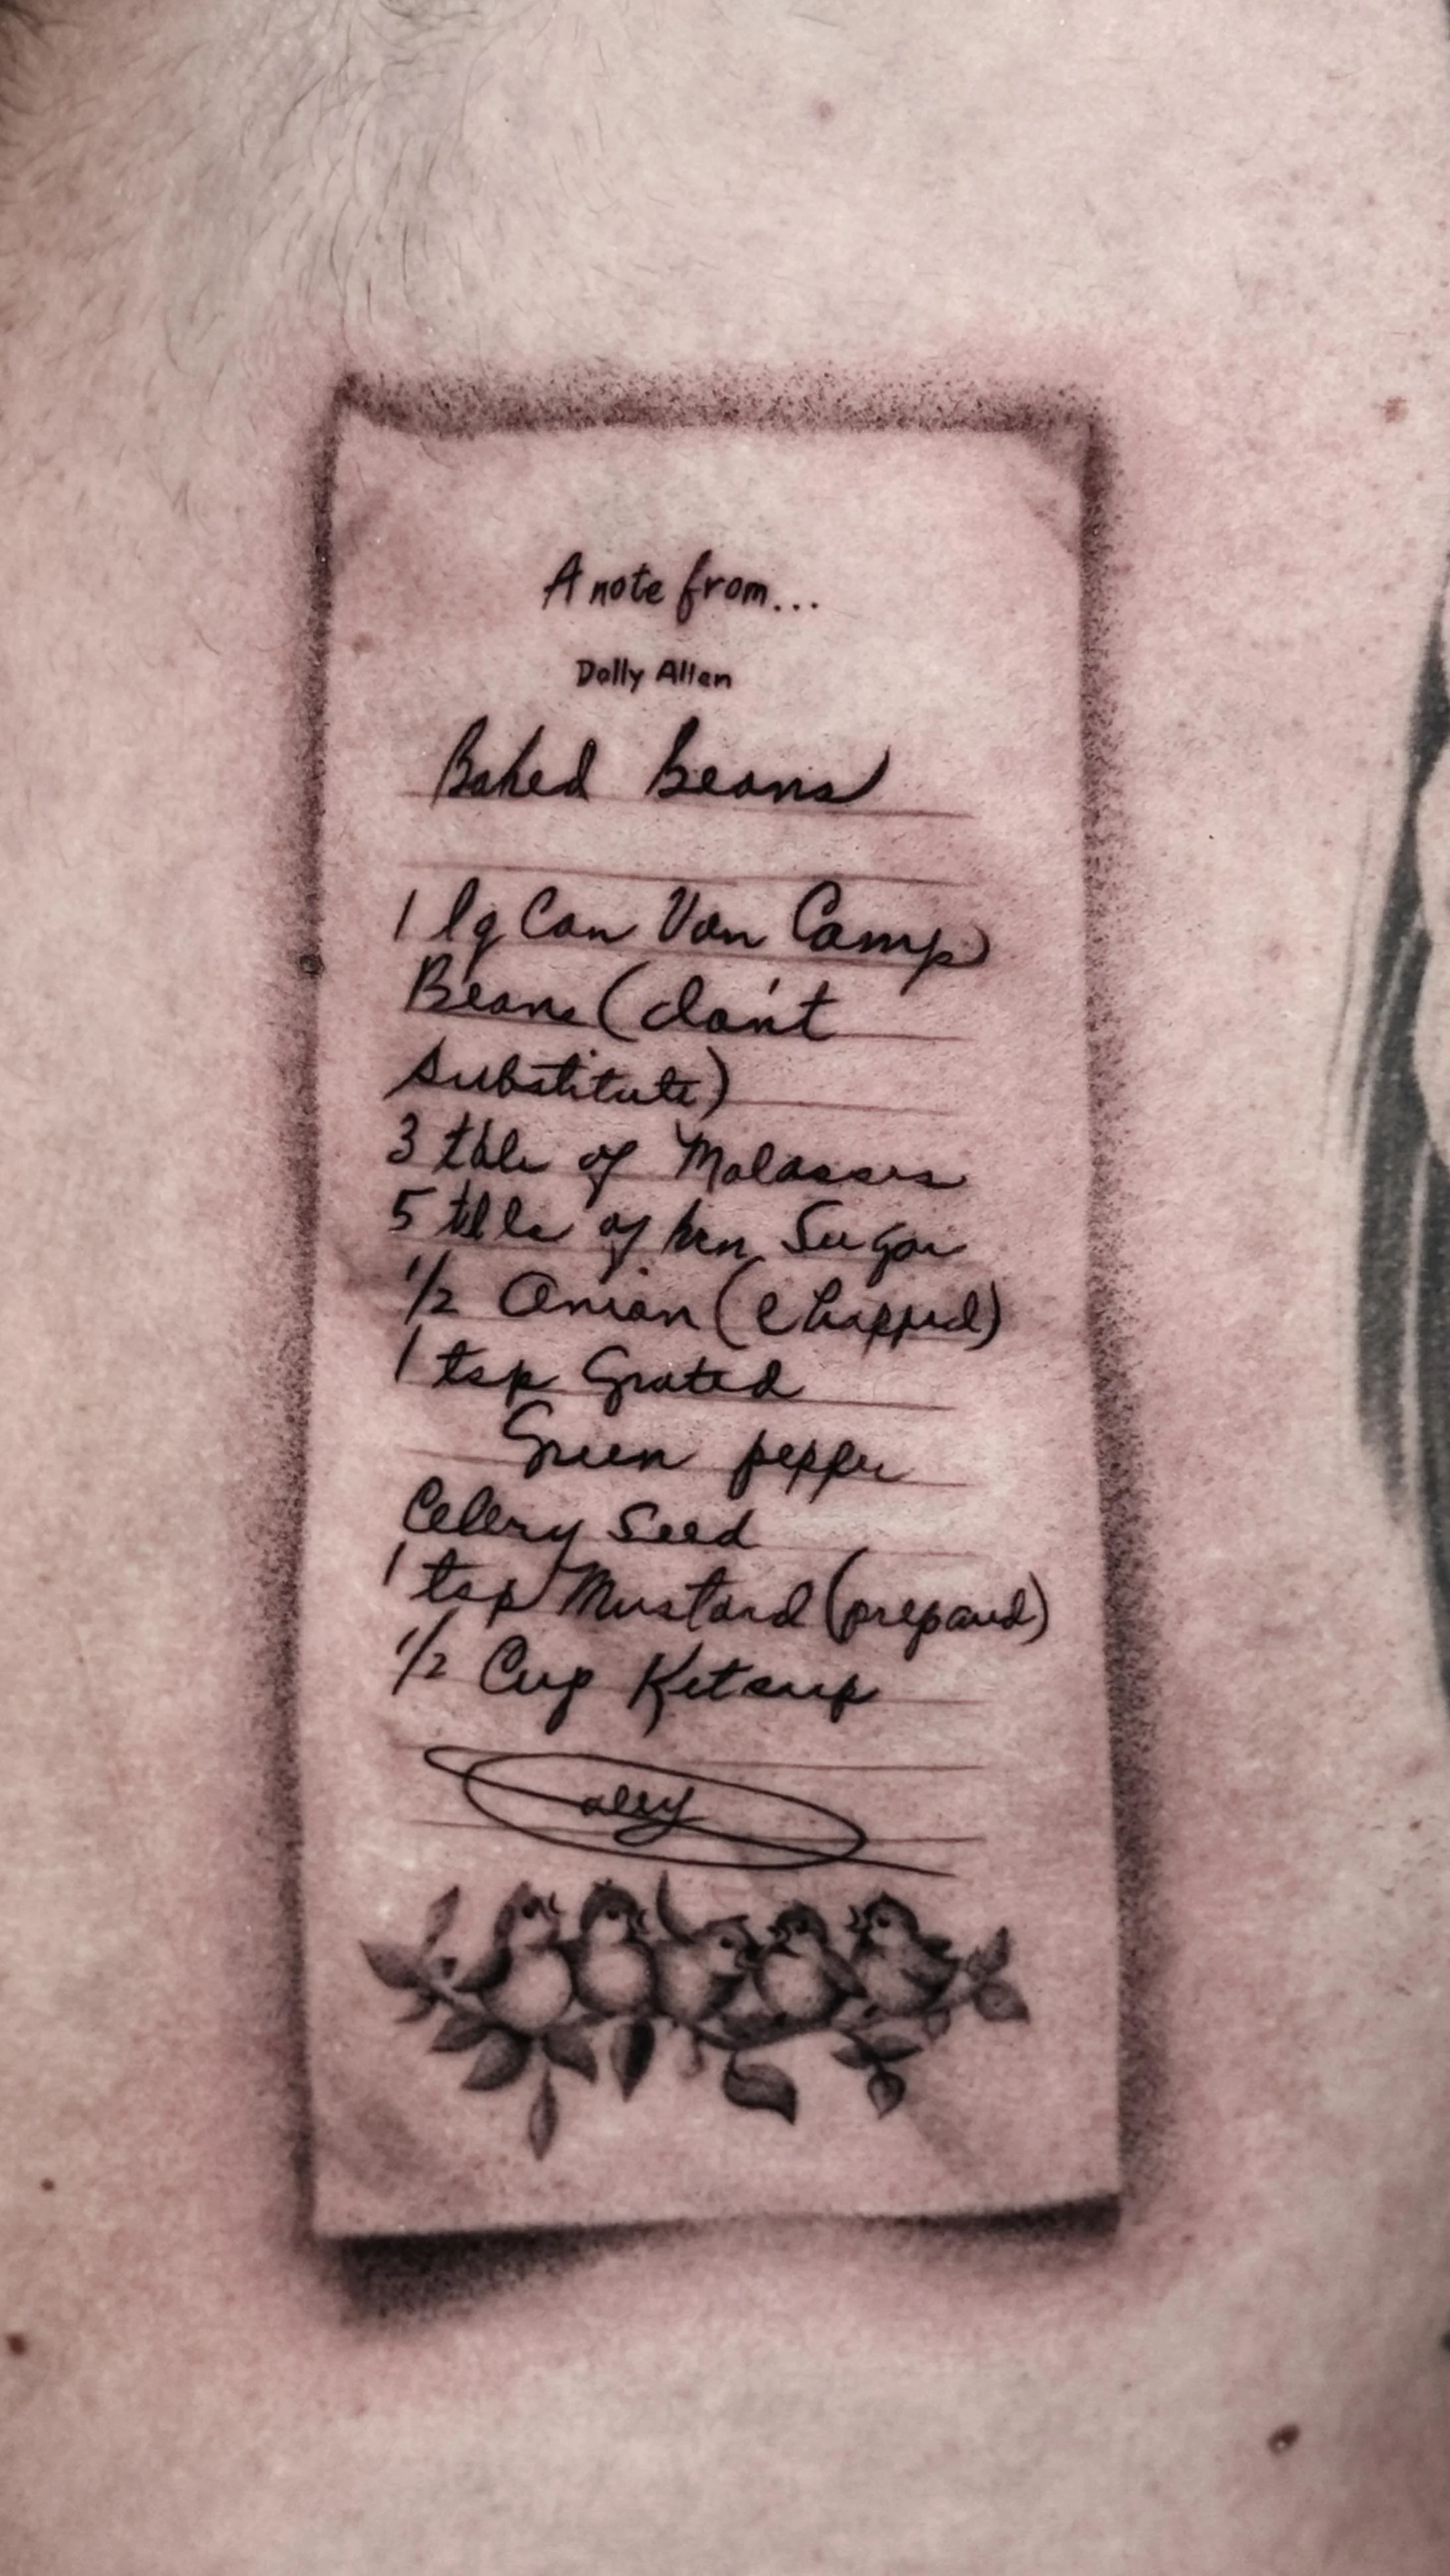 A note from...
Dolly Allen
Baked Beans
1 lg Can Van Camp
Beans (don't
substitute)
3 tbls of Molasses
5 tbls of brn Sugar
1/2 Onion (chopped)
1 tsp Grated
Green pepper
Celery Seed
1 tsp Mustard (prepared)
1/2 Cup Ketsup
Dolly